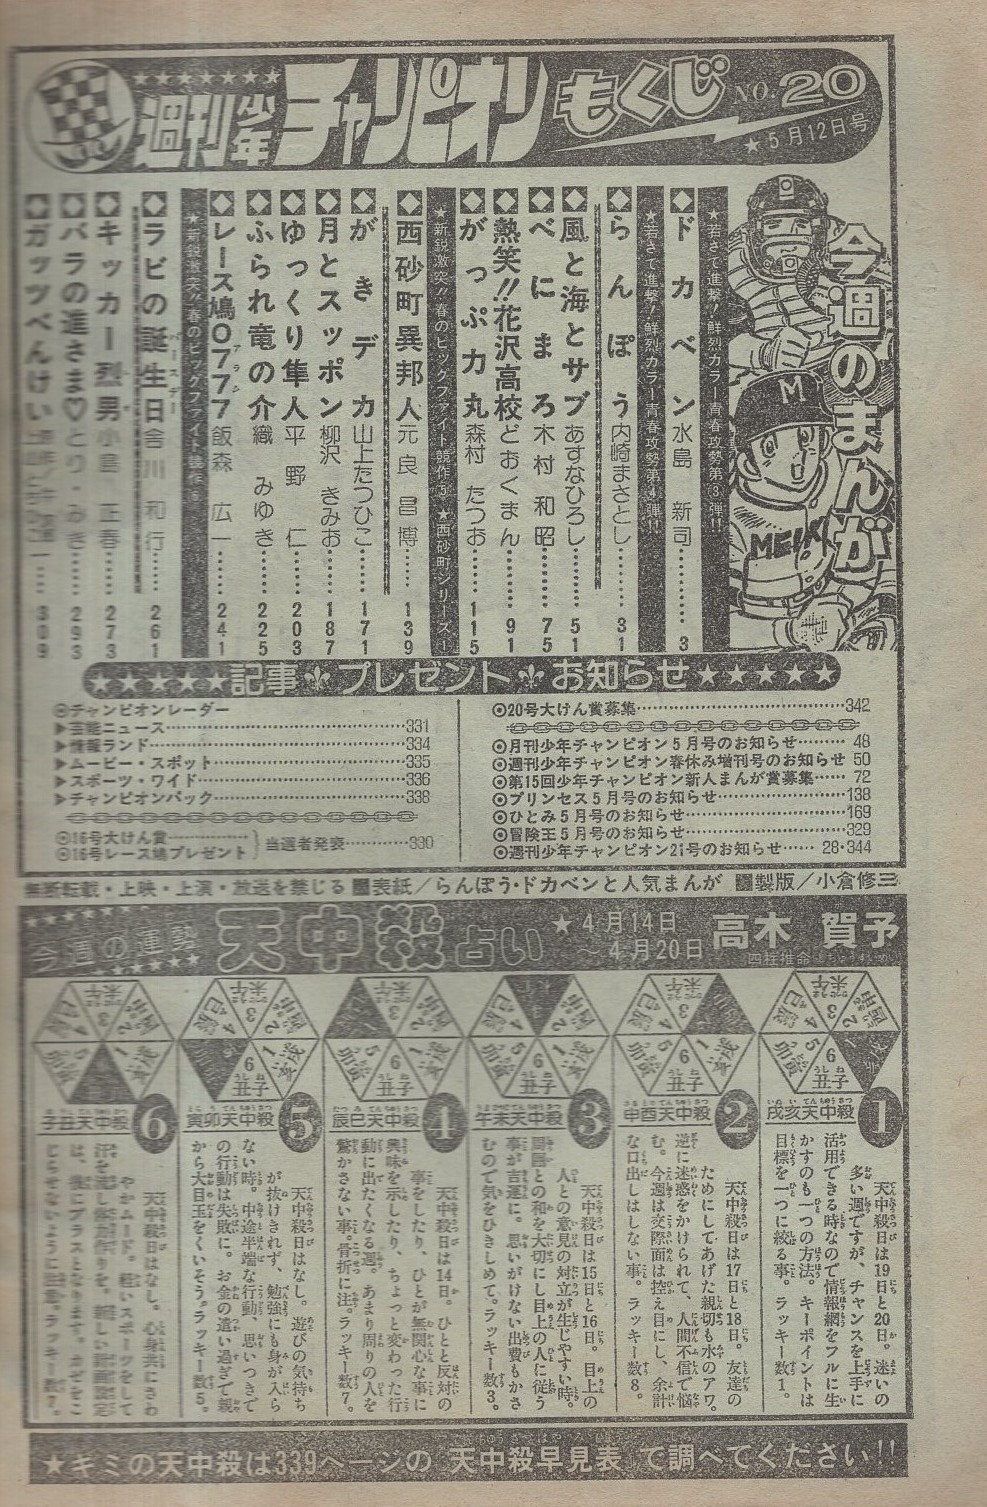 週刊少年チャンピオン もくじ NO.20
★5月12日号
今週のまんが
★若さで進撃!鮮烈カラー青春攻勢第3弾!!
ドカベン 水島新司 3
★若さで進撃!鮮烈カラー青春攻勢第4弾!!
らんぽう 内崎まさとし 31
風と海とサブ あすなひろし 51
べにまろ 木村和昭 75
熱笑!!花沢高校 どおくまん 91
がっぷ力丸 森村たつお 115
★新鋭激突!!春のビッグファイト競作⑤ ★西砂町シリーズ
西砂町異邦人 元良昌博 139
がきデカ 山上たつひこ 171
月とスッポン 柳沢きみお 187
ゆっくり隼人 平野仁 203
ふられ竜の介 織みゆき 225
レース鳩0777 飯森広一 241
アラシ
★新鋭激突!!春のビッグファイト競作
ラビの誕生日 舎川和行 261
バースデー
キッカー烈男 小島正春 273
バラの進さま♡ とり・みき 293
ガッツべんけい 309
★★★★★記事 プレゼント お知らせ★★★★★
チャンピオンレーダー
▶芸能ニュース 331
▶情報ランド 334
▶ムービー・スポット 335
▶スポーツ・ワイド 336
▶チャンピオンパック 338
⊙16号大けん賞
⊙16号レース鳩プレゼント
当選者発表 330
⊙20号大けん賞募集 342
⊙月刊少年チャンピオン5月号のお知らせ 48
⊙週刊少年チャンピオン春休み増刊号のお知らせ 50
⊙第15回少年チャンピオン新人まんが賞募集 72
⊙プリンセス5月号のお知らせ 138
⊙ひとみ5月号のお知らせ 169
⊙冒険王5月号のお知らせ 329
⊙週刊少年チャンピオン21号のお知らせ 28・344
無断転載・上映・上演・放送を禁じる ■表紙/らんぽう・ドカベンと人気まんが ■製版/小倉修三
今週の運勢 天中殺占い ★4月14日〜4月20日 高木賀予
四柱推命
1
戌亥天中殺
天中殺日は19日と20日。迷いの
多い週ですが、チャンスを上手に
活用できる時なので情報網をフルに生
かすのも一つの方法。キーポイントは
目標を一つに絞る事。ラッキー数1。
2
申酉天中殺
天中殺日は17日と18日。友達の
ためにしてあげた親切も水のアワ。
逆に迷惑をかけられて、人間不信で悩
む。今週は交際面は控え目にし、余計
な口出しはしない事。ラッキー数8。
3
午未天中殺
天中殺日は15日と16日。目上の
人との意見の対立が生じやすい時。
周囲との和を大切にし目上の人に従う
事が吉運に。思いがけない出費もかさ
むので気をひきしめて。ラッキー数3。
4
辰巳天中殺
天中殺日は14日。ひとと反対の
事をしたり、ひとが無関心な事に
興味を示したり、ちょっと変わった行
動に出たくなる週。あまり周りの人を
驚かさない事。骨折に注。ラッキー数7。
5
寅卯天中殺
天中殺日はなし。遊びの気持ち
が抜けきれず、勉強にも身が入ら
ない時。中途半端な行動、思いつきで
の行動は失敗に。お金の遣い過ぎで親
から大目玉をくいそう。ラッキー数5。
6
子丑天中殺
天中殺日はなし。心身共にさわ
やかムード。軽いスポーツをして
汗を流し体力作りを。新しい計画設定
は、後にプラスとなります。カゼをこ
じらせないように注意。ラッキー数7。
★キミの天中殺は339ページの 天中殺早見表 で調べてください!!